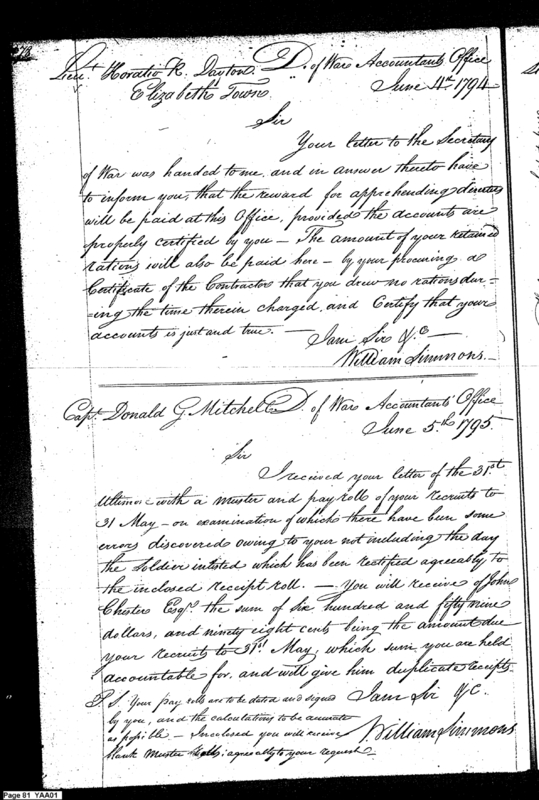 273
Lieut. Horatio R. Dayton D. of War Accountants Office
Elizabeth Town June 4th 1794
Sir
Your letter to the Secretary
of War was handed to me, and in answer thereto have
to inform you, that the reward for apprehending deserters
will be paid at this Office, provided the accounts are
properly certified by you — The amount of your retained
rations will also be paid here — by your procuring a
Certificate of the Contractors that you drew no rations dur-
=ing the time therein charged, and Certify that your
accounts is just and true. —
I am Sir &c —
William Simmons —
Capt. Donald G Mitchell D. of War Accountants Office
June 5th 1795.
Sir
I recieved your letter of the 31st
Ultimo with a muster and pay roll of your recruits to
31 May — on examination of which there have been some
errors discovered owing to your not including the day
the Soldier inlisted which has been rectified agreeably to
the inclosed receipt roll. — You will receive of John
Chester Esqr. the sum of six hundred and fifty nine
dollars, and ninety eight cents being the amount due
your recruits to 31st May, which sum you are held
accountable for, and will give him duplicate receipts
I am Sir &c.
William Simmons
P.S. Your pay rolls are to be dated and signed
by you, and the calculations to be accurate
as possible — Inclosed you will receive
blank Muster Rolls agreeably to your request —
Page 81 YAA01